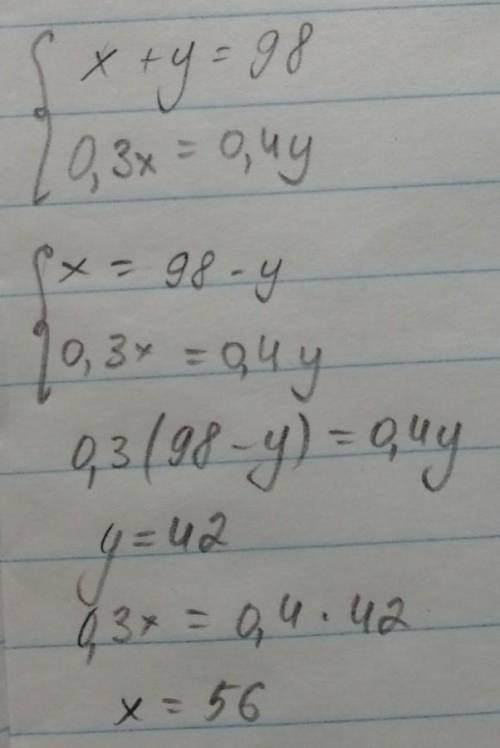 x + y = 98
0,3x = 0,4y
x = 98 - y
0,3x = 0,4y
0,3(98 - y) = 0,4y
y = 42
0,3x = 0,4 · 42
x = 56